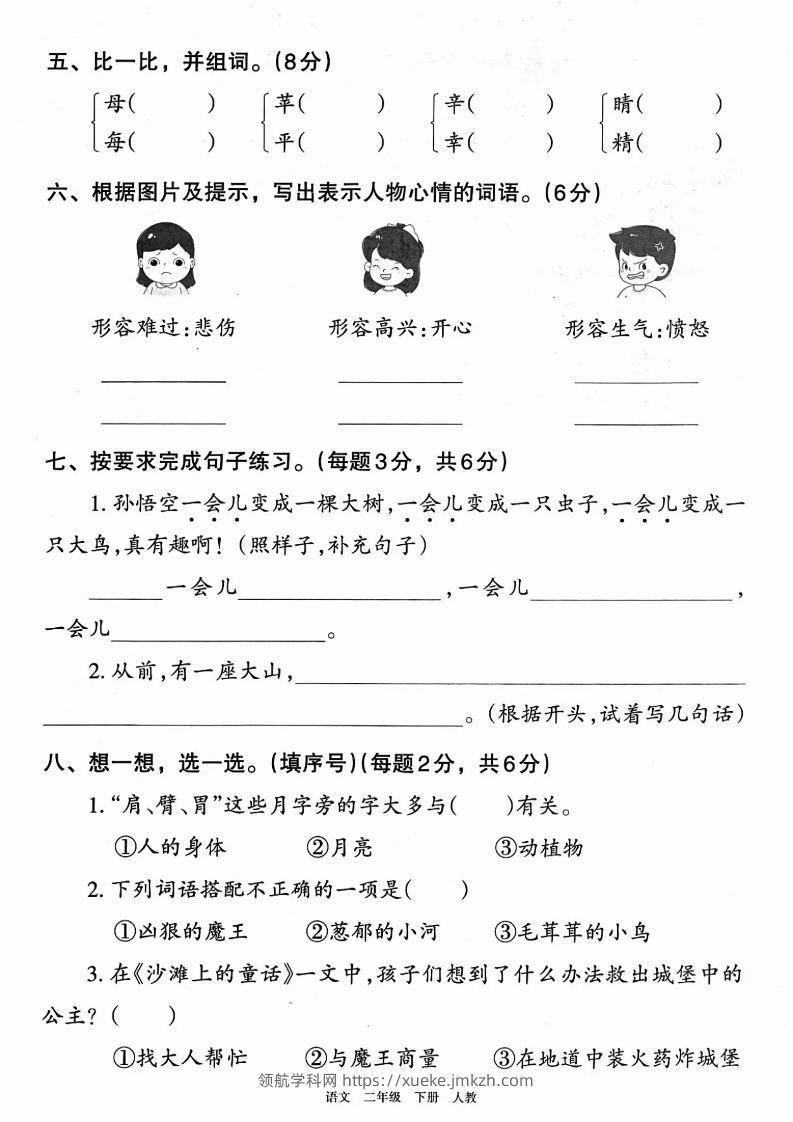 五、比一比，并组词。（8分）
母(　　)　苹(　　)　辛(　　)　晴(　　)
每(　　)　平(　　)　幸(　　)　精(　　)
六、根据图片及提示，写出表示人物心情的词语。（6分）
形容难过:悲伤　形容高兴:开心　形容生气:愤怒
七、按要求完成句子练习。（每题3分，共6分）
1. 孙悟空一会儿变成一棵大树,一会儿变成一只虫子,一会儿变成一
只大鸟,真有趣啊!（照样子,补充句子）
______一会儿__________________,一会儿__________________,
一会儿__________________。
2. 从前,有一座大山,____________________________________
____________________________________。（根据开头,试着写几句话）
八、想一想，选一选。（填序号）（每题2分，共6分）
1. “肩、臂、胃”这些月字旁的字大多与(　　)有关。
①人的身体　②月亮　③动植物
2. 下列词语搭配不正确的一项是(　　)
①凶狠的魔王　②葱郁的小河　③毛茸茸的小鸟
3. 在《沙滩上的童话》一文中,孩子们想到了什么办法救出城堡中的
公主?(　　)
①找大人帮忙　②与魔王商量　③在地道中装火药炸城堡
领航学科网 https://xueke.jmkzh.com
语文　二年级　下册　人教